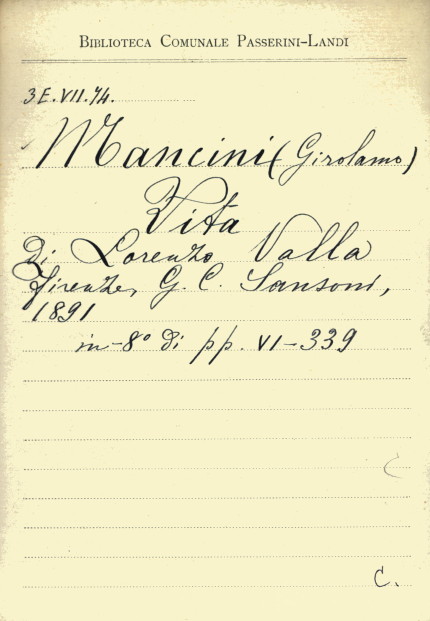 BIBLIOTECA COMUNALE PASSERINI-LANDI
3E.VII.74.
Mancini (Girolamo)
Vita
di Lorenzo Valla
Firenze, G. C. Sansoni,
1891
in-8° di pp. VI-339
C.